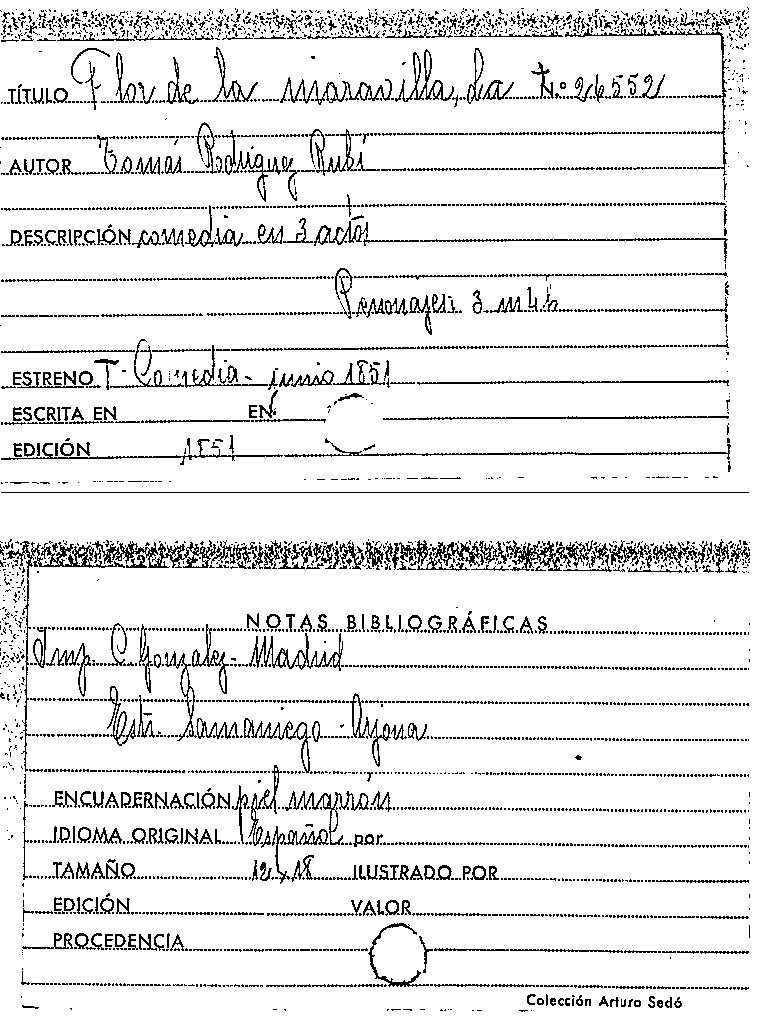 TÍTULO Flor de la maravilla, La N.º 24552
AUTOR Tomás Rodriguez Rubí
DESCRIPCIÓN comedia en 3 actos
Personajes: 3 m 4 h
ESTRENO T. Comedia - junio 1851
ESCRITA EN EN
EDICIÓN 1851
NOTAS BIBLIOGRÁFICAS
Imp. C. Gonzalez - Madrid
Estr. Samaniego - Arjona
ENCUADERNACIÓN piel marrón
IDIOMA ORIGINAL Español por
TAMAÑO 12 x 18 ILUSTRADO POR
EDICIÓN VALOR
PROCEDENCIA
Colección Arturo Sedó